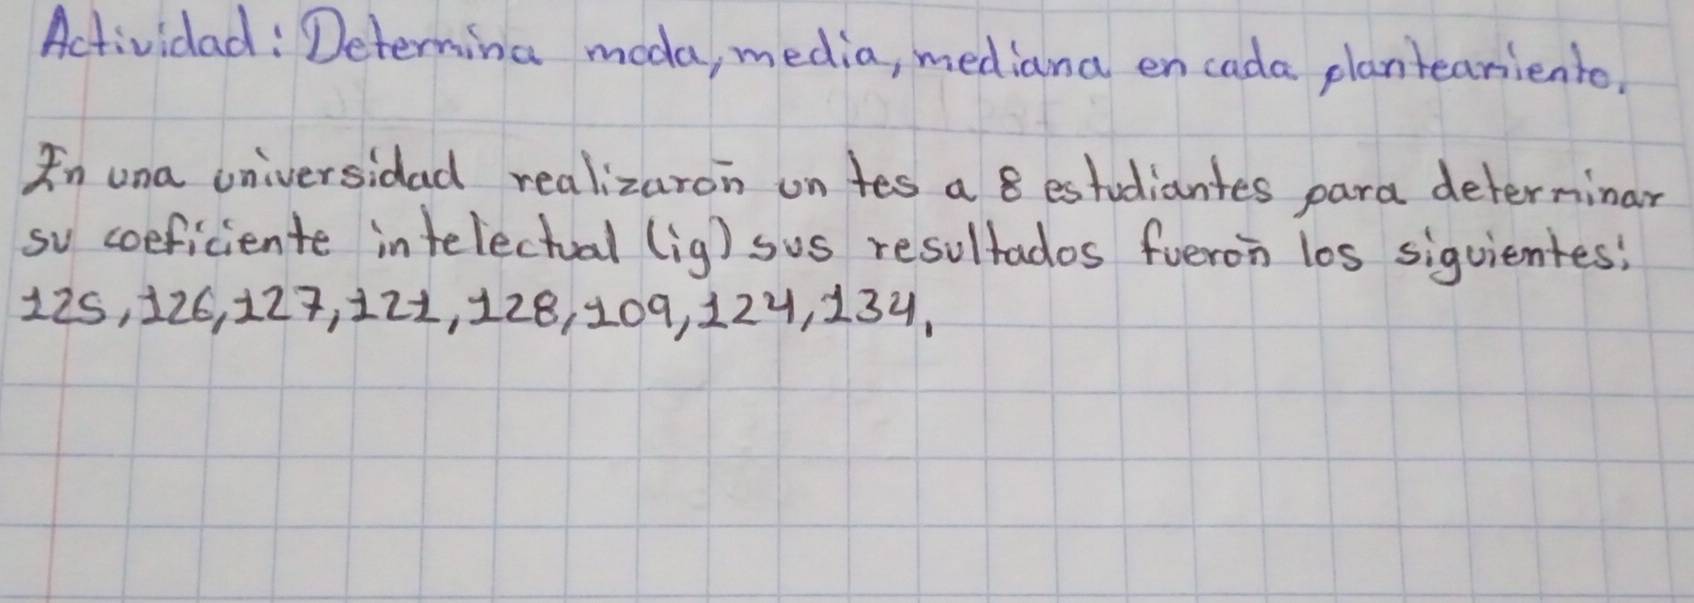 Actividad: Determina moda, media, mediana en cada planteamiento.
In una universidad realizarón un tes a 8 estudiantes para determinar
su coeficiente intelectual (ig) sus resultados fuerón los siguientes:
125, 126, 127, 121, 128, 109, 124, 134.